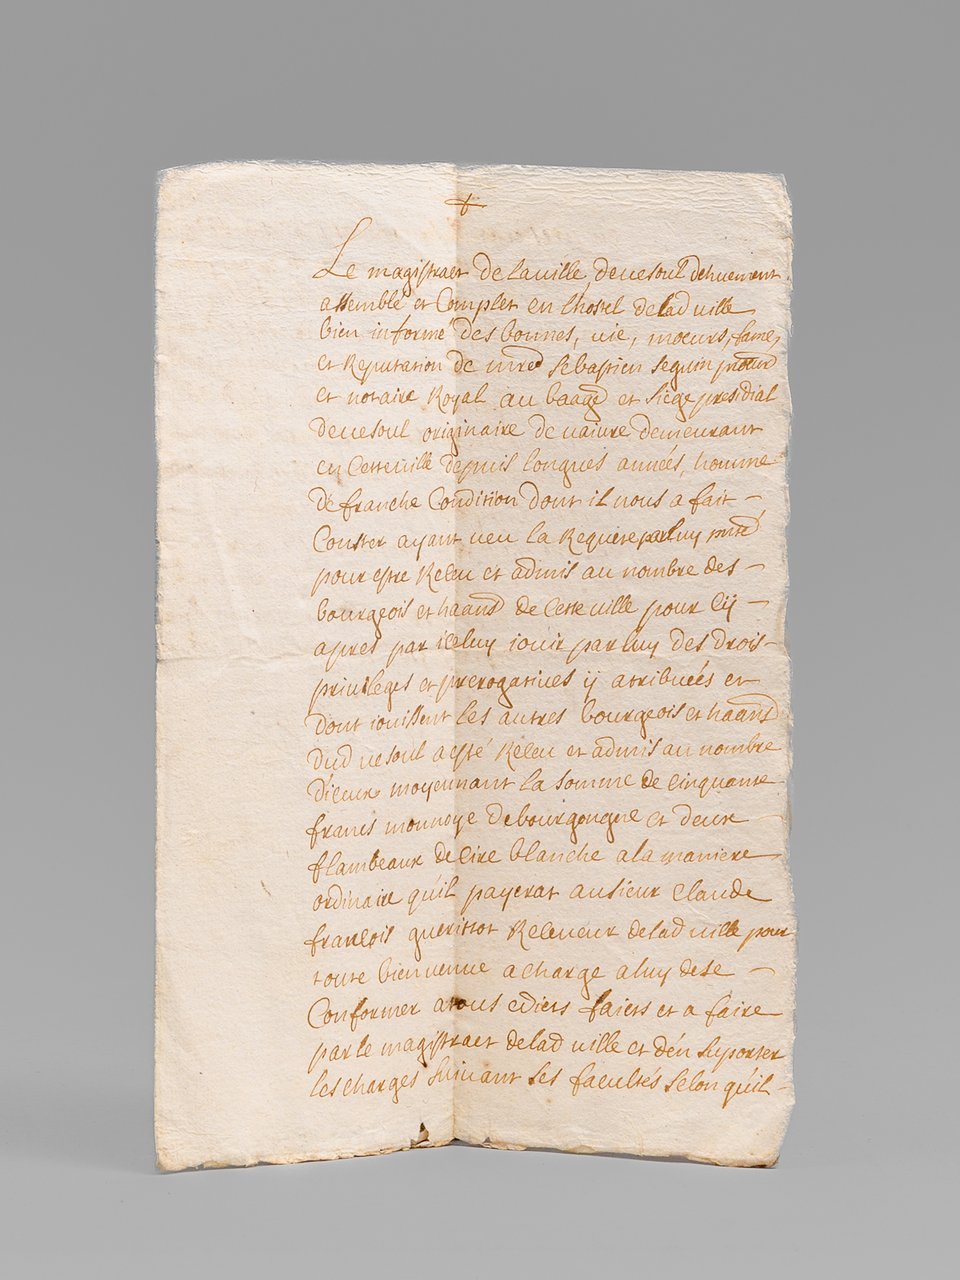 Le magistraet de la ville de vesoul dehuement
assemblé et Complet en lhostel delad ville
bien informé des bonnes, vie, moeurs, fame,
et Reputation de mre sebastien seguin procurd
et notaire Royal au baage et siége presidial
de vesoul originaire de vaivre demeurant
en Cette ville depuis longues années, homme
de franche Condition dont il nous a fait –
Conster ayant veu la Requeste par luy
pour estre Receu et admis au nombre des –
bourgeois et haans de Cette ville pour Cij –
apres par iceluy iouir par luy des drois –
privileges et prerogatives ij atribuées et
dont iouissent les autres bourgeois et haans
dud vesoul a esté Receu et admis au nombre
d'iceux moyennant la somme de cinquante
francs monnoye de bourgongne et deux –
flambeaux de Cire blanche a la maniere
ordinaire qu'il payerat au sieur Claude
françois queritiot Receveur delad ville pour
toute bienvenue a charge a luy de se –
Conformer a tous edicts faicts et a faire
par le magistraet delad ville et d'en suporter
les charges suivant ses facultés selon qu'il –